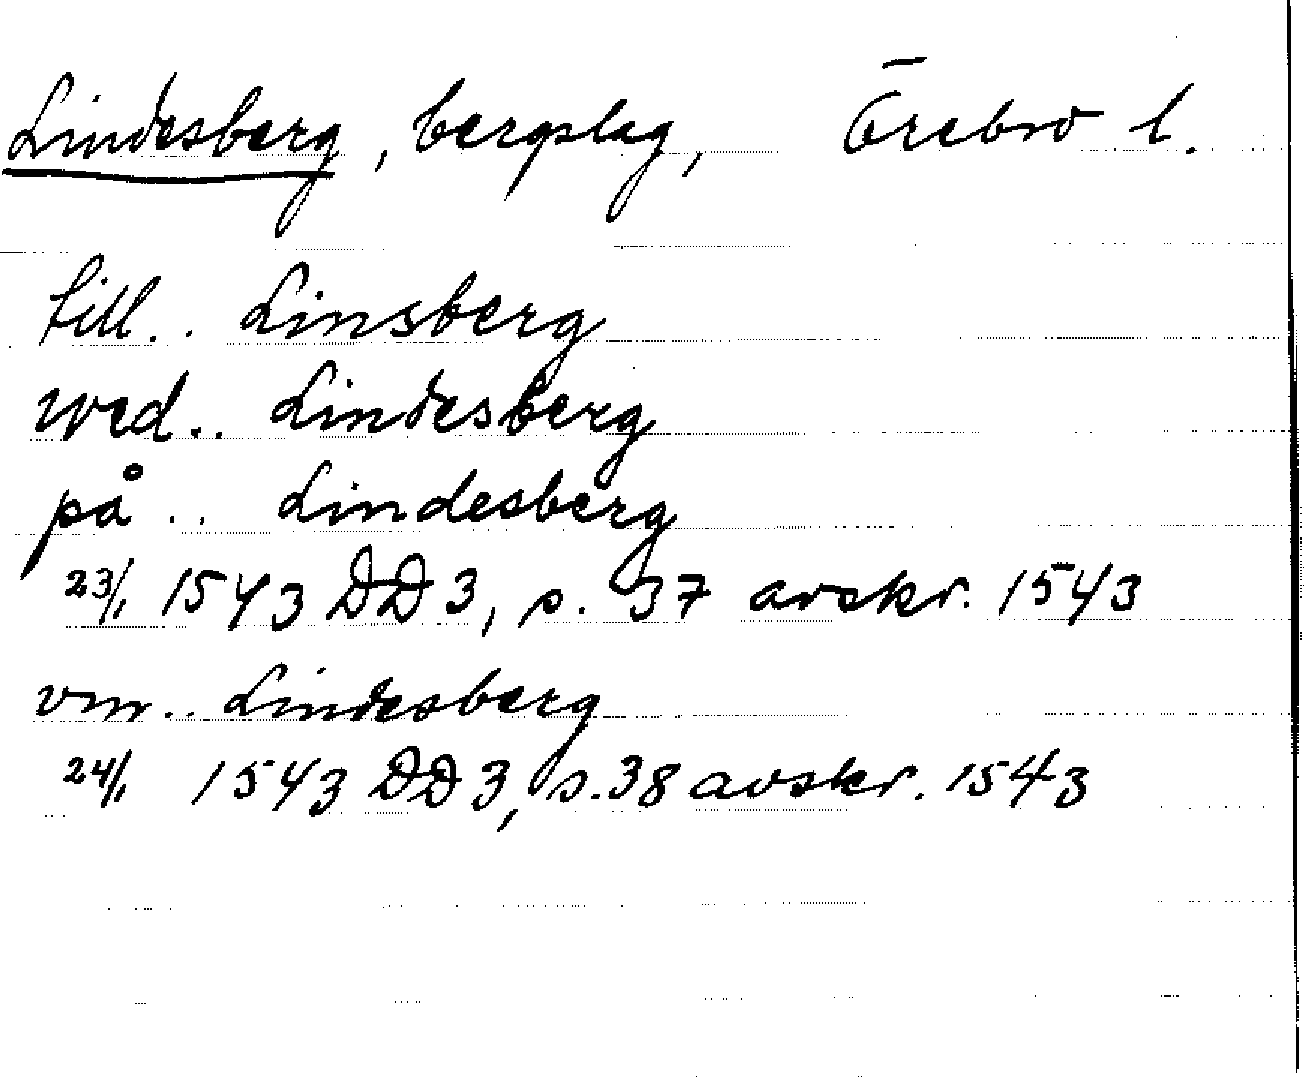 Lindesberg, bergslag, Örebro l.
till.. Linsberg
wed.. Lindesberg
på .. Lindesberg
23/1 1543 DD 3, s. 37 avskr. 1543
vm.. Lindesberg
24/1 1543 DD 3, s. 38 avskr. 1543